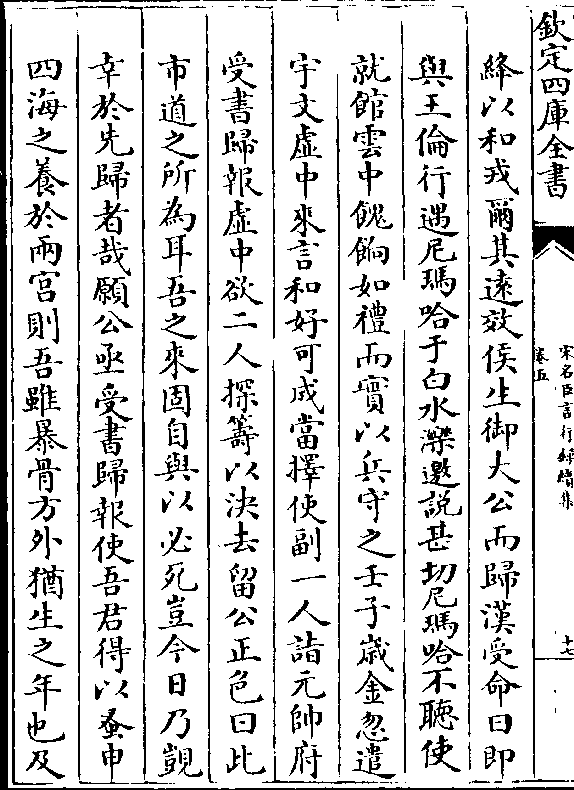 欽定四庫全書
宋名臣言行錄續集
卷五
十七
絳以和戎爾其速效侯生御大公而歸漢受命日即
與王倫行遇尼瑪哈于白水濼邀說甚切尼瑪哈不聽使
就館雲中餽餉如禮而實以兵守之壬子歲金忽遣
宇文虛中來言和好可成當擇使副一人詣元帥府
受書歸報虛中欲二人探籌以決去留公正色曰此
市道之所為耳吾之來固自與以必死豈今日乃覬
幸於先歸者哉願公亟受書歸報使吾君得以蚤申
四海之養於兩宮則吾雖暴骨方外猶生之年也及